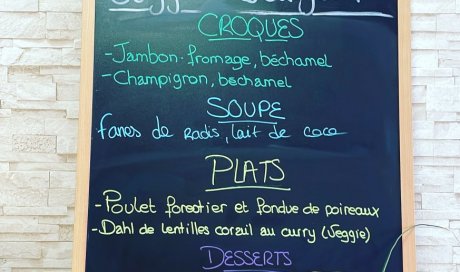 CROQUES
- Jambon-fromage, béchamel
- Champignon, bechamel
SOUPE
fanes de Radis, lait de coco
PLATS
- Poulet forestier et fondue de poireaux
- Dahl de lentilles corail au curry (Veggie)
DESSERTS